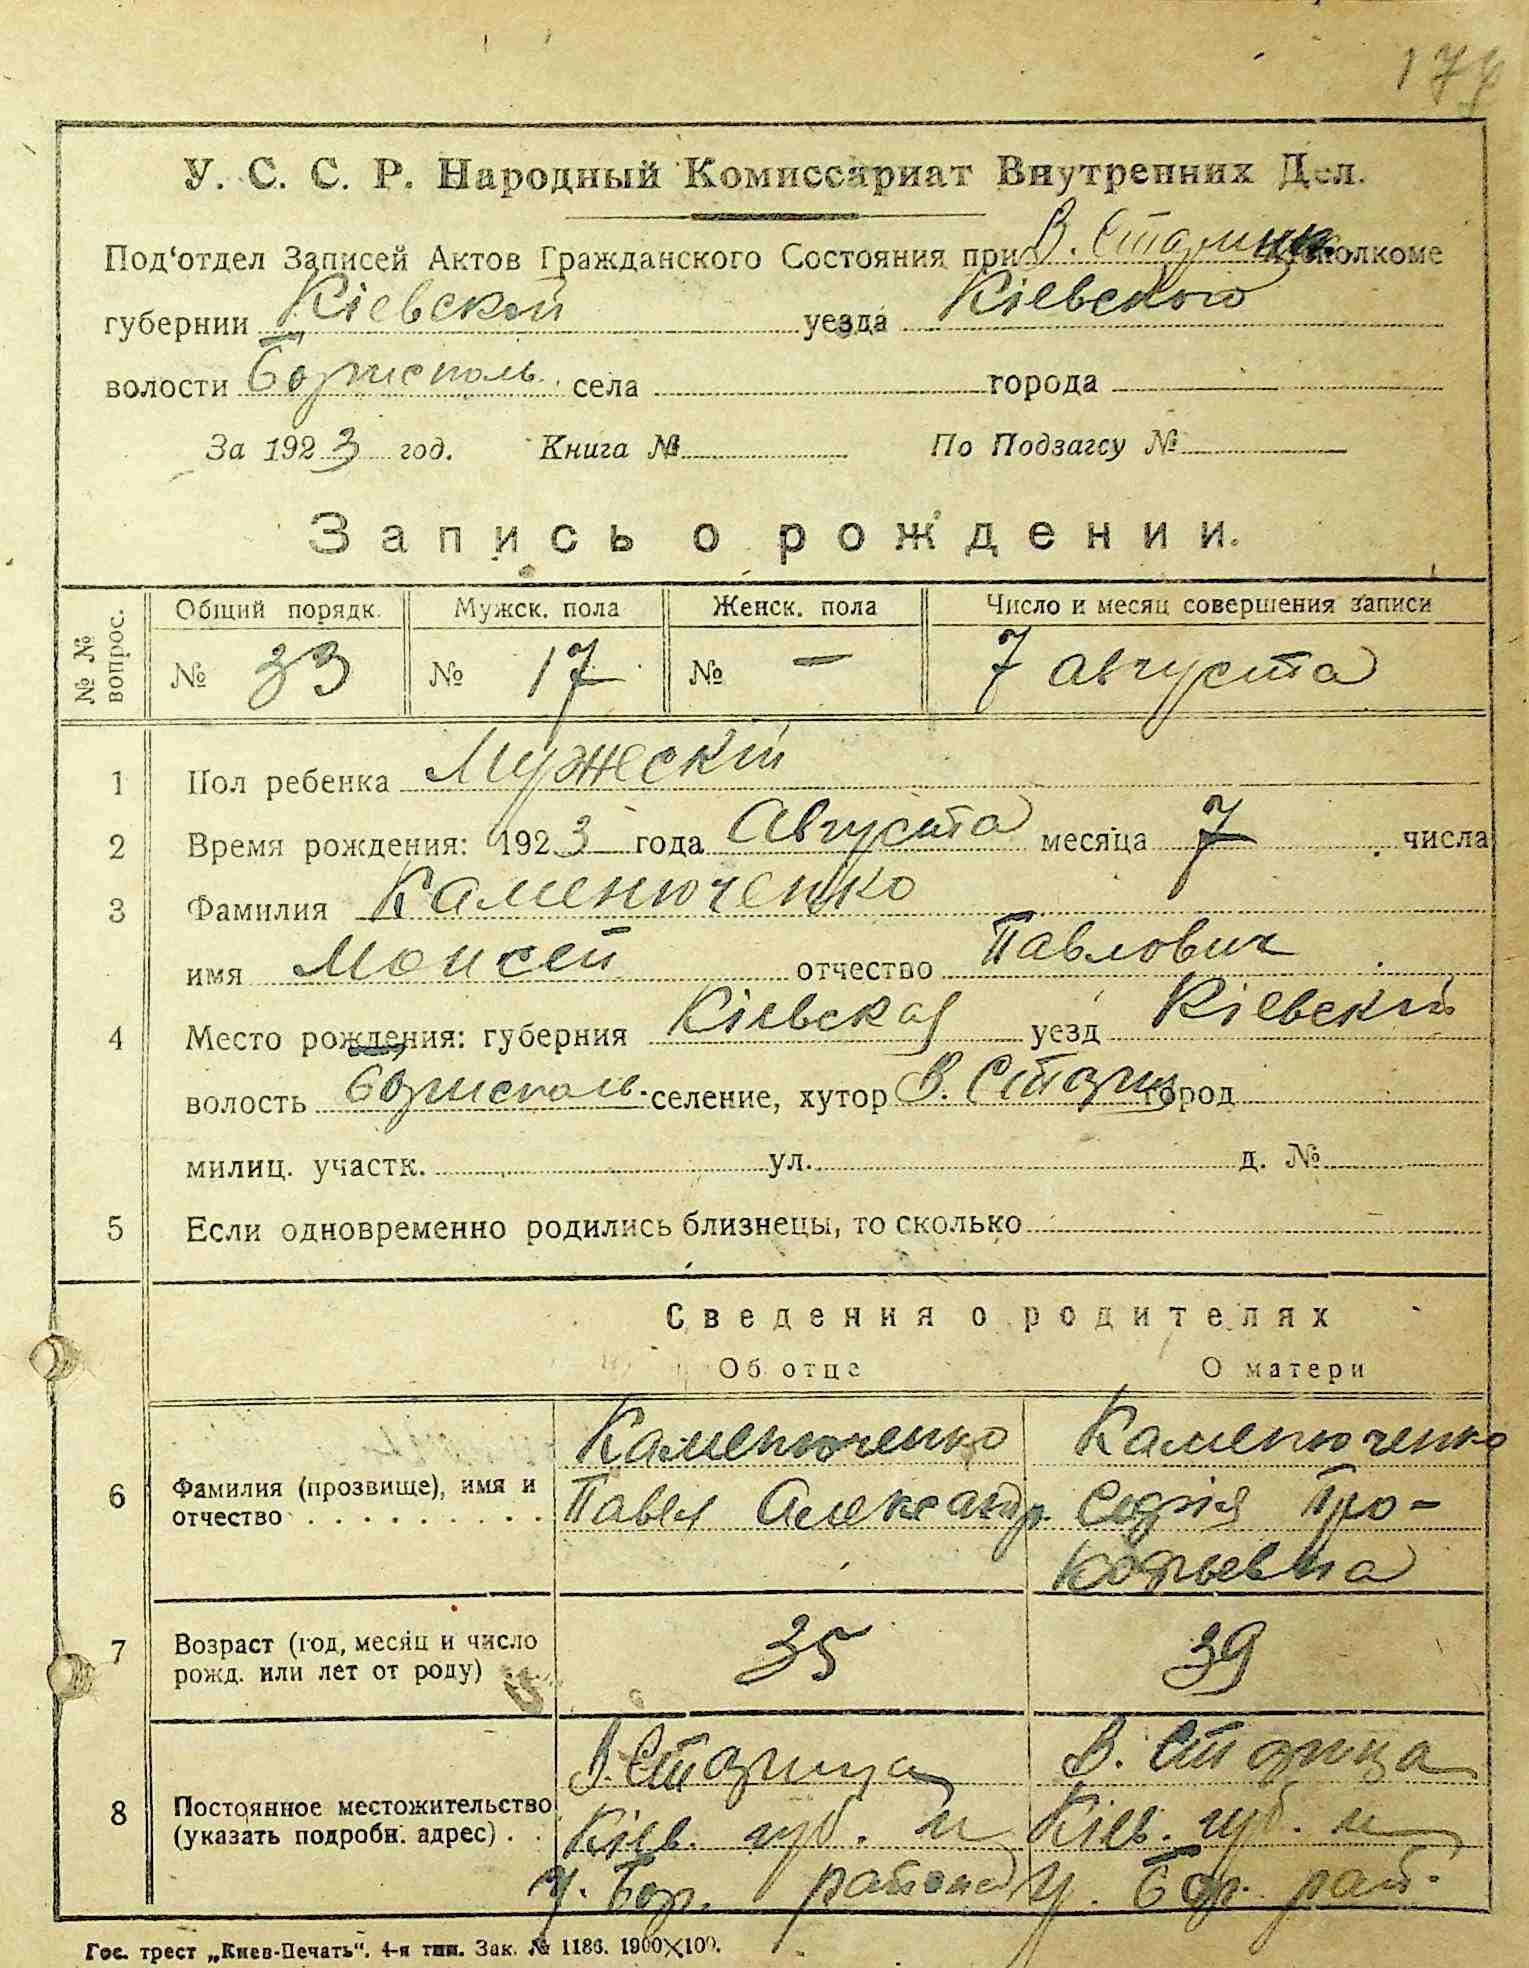 У. С. С. Р. Народный Комиссариат Внутренних Дел.
Под'отдел Записей Актов Гражданского Состояния при В. Старицк. исполкоме
губернии Кіевской уезда Кіевского
волости Борисполь. села города
За 1923 год. Книга № По Подзагсу №
Запись о рождении.
№ № вопрос. Общий порядк. Мужск. пола Женск. пола Число и месяц совершения записи
№ 33 № 17 № — 7 августа
1 Пол ребенка Мужескій
2 Время рождения: 1923 года Августа месяца 7 числа
3 Фамилия Каменюченко
имя Моисей отчество Павлович
4 Место рождения: губерния Кіевская уезд Кіевскій
волость Борисполь. селение, хутор В. Стариц город
милиц. участк. ул. д. №
5 Если одновременно родились близнецы, то сколько
Сведения о родителях
Об отце О матери
6 Фамилия (прозвище), имя и отчество
Каменюченко Павел Александр.
Каменюченко Софія Про-
кофьевна
7 Возраст (год, месяц и число рожд. или лет от роду) 35 39
8 Постоянное местожительство (указать подробн. адрес)
В. Старица
Кіев. губ. и
у. Бор. района
В. Старица
Кіев. губ. и
у. Бор. рай.
Гос. трест „Киев-Печать". 4-я тип. Зак. № 1186. 1900×100.